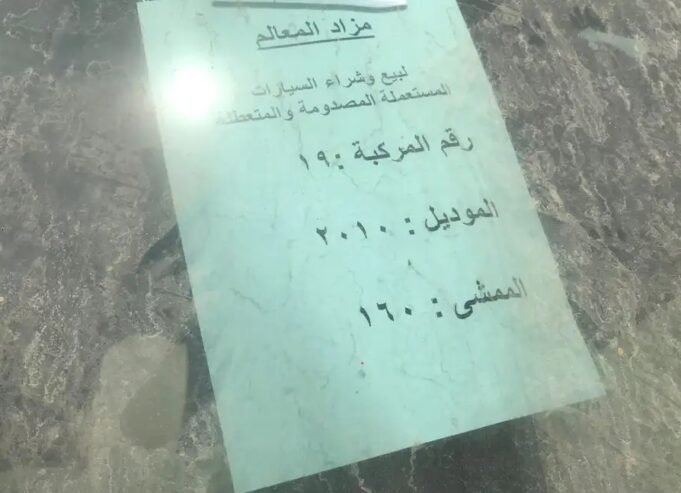 مزاد المعالم
لبيع وشراء السيارات
المستعملة المصدومة والمتعطلة
رقم المركبة : ١٩
الموديل : ٢٠١٠
الممشى : ١٦٠